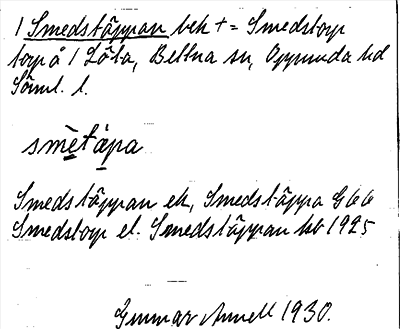 1 Smedstäppan bek + = Smedstorp
torp å 1 Löta, Bettna sn, Oppunda hd
Söml. l.
smètàpa
Smedstäppan ek, Smedstäppa G66
Smedstorp el. Smedstäppan hb 1925
Gunnar Annell 1930.